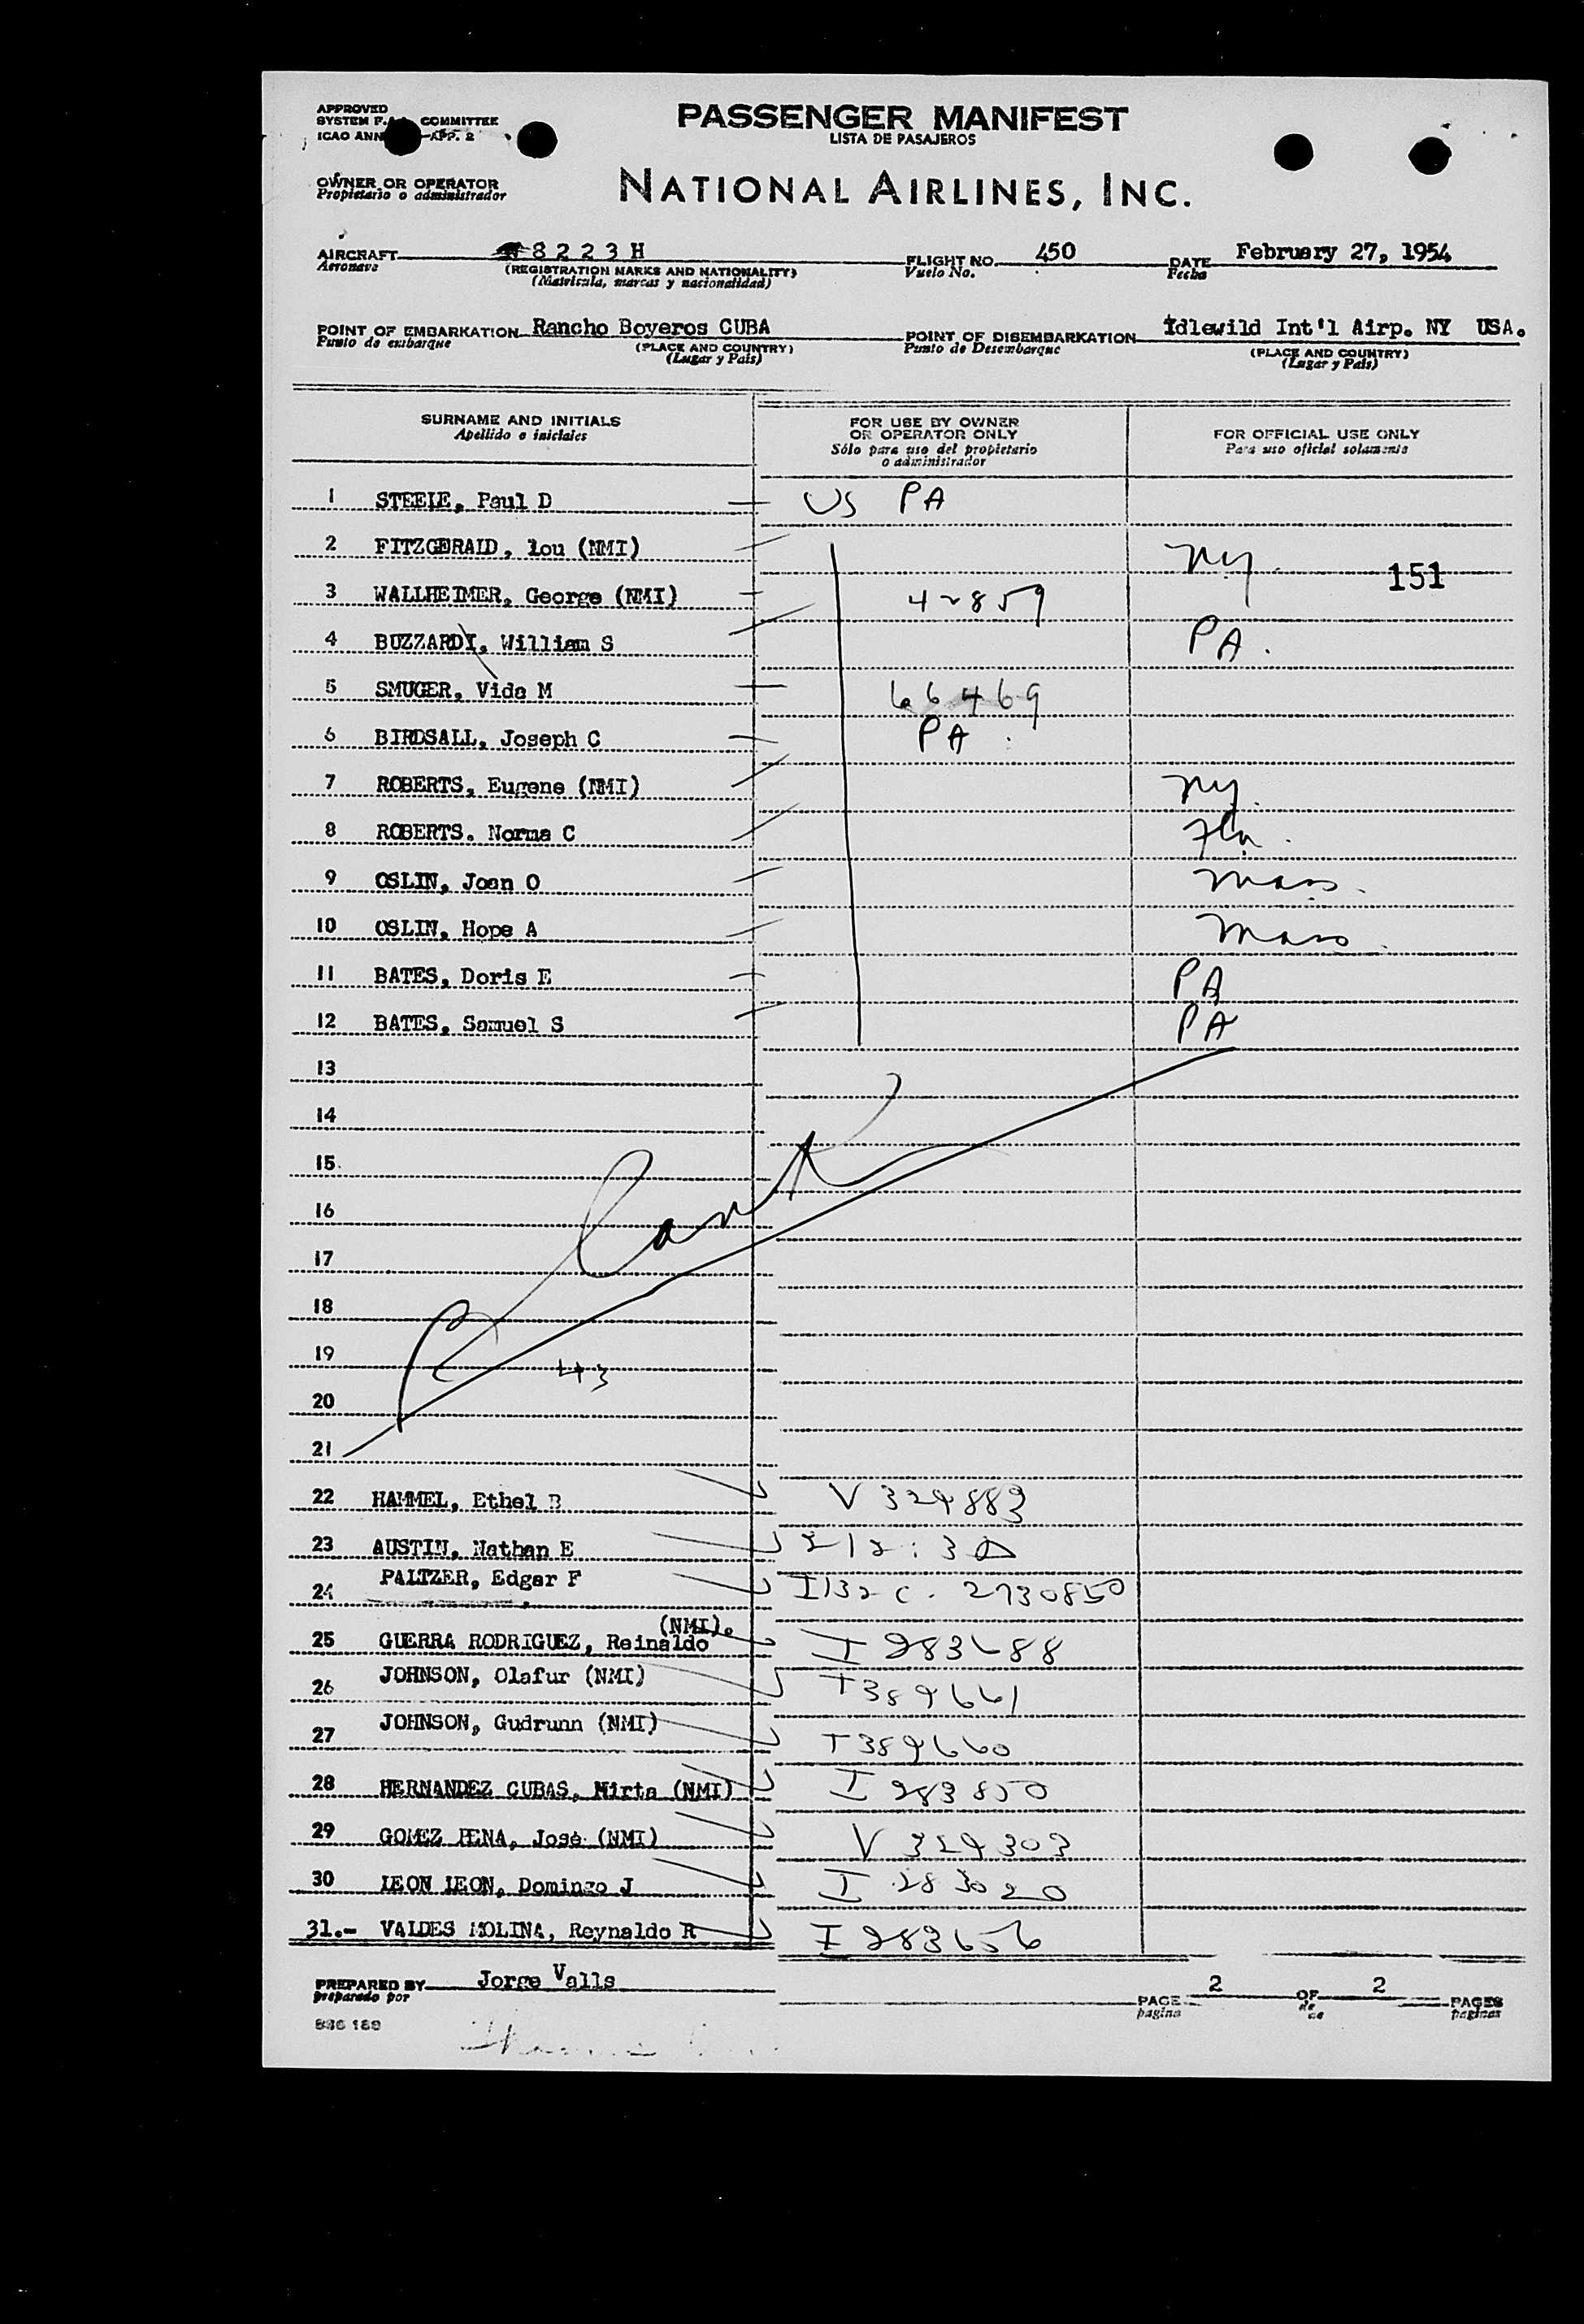 APPROVED
SYSTEM F. COMMITTEE
ICAO ANN APP. 2
PASSENGER MANIFEST
LISTA DE PASAJEROS
OWNER OR OPERATOR
Propietario o administrador
NATIONAL AIRLINES, INC.
AIRCRAFT 8223H FLIGHT NO. 450 DATE February 27, 1954
Aeronave (REGISTRATION MARKS AND NATIONALITY) Vuelo No. Fecha
(Matricula, marcas y nacionalidad)
POINT OF EMBARKATION Rancho Boyeros CUBA POINT OF DISEMBARKATION Idlewild Int'l Airp. NY USA.
Punto de embarque (PLACE AND COUNTRY) Punto de Desembarque (PLACE AND COUNTRY)
(Lugar y País) (Lugar y País)
SURNAME AND INITIALS FOR USE BY OWNER OR OPERATOR ONLY FOR OFFICIAL USE ONLY
Apellido e iniciales Sólo para uso del propietario o administrador Para uso oficial solamente
1 STEELE, Paul D US PA
2 FITZGERALD, lou (NMI) NY. 151
3 WALLHEIMER, George (NMI) 42859
4 BUZZARDY, William S PA.
5 SMUGER, Vida M 66469
6 BIRDSALL, Joseph C PA
7 ROBERTS, Eugene (NMI) NY.
8 ROBERTS. Norma C Fla.
9 OSLIN, Joan O Mass.
10 OSLIN, Hope A Mass.
11 BATES, Doris E PA
12 BATES, Samuel S PA
13
14
15
16
17
18
19 43
20
21
22 HAMMEL, Ethel B V 324883
23 AUSTIN, Nathan E 212:3D
24 PALTZER, Edgar F I132 C. 2730850
(NMI).
25 GUERRA RODRIGUEZ, Reinaldo I 283688
26 JOHNSON, Olafur (NMI) T389661
27 JOHNSON, Gudrunn (NMI) T389660
28 HERNANDEZ CUBAS, Mirta (NMI) I 283850
29 GOMEZ PENA, José (NMI) V 324303
30 LEON LEON, Domingo J I 283020
31.- VALDES MOLINA, Reynaldo R I 283656
PREPARED BY Jorge Valls PAGE 2 OF 2 PAGES
preparado por pagina de paginas